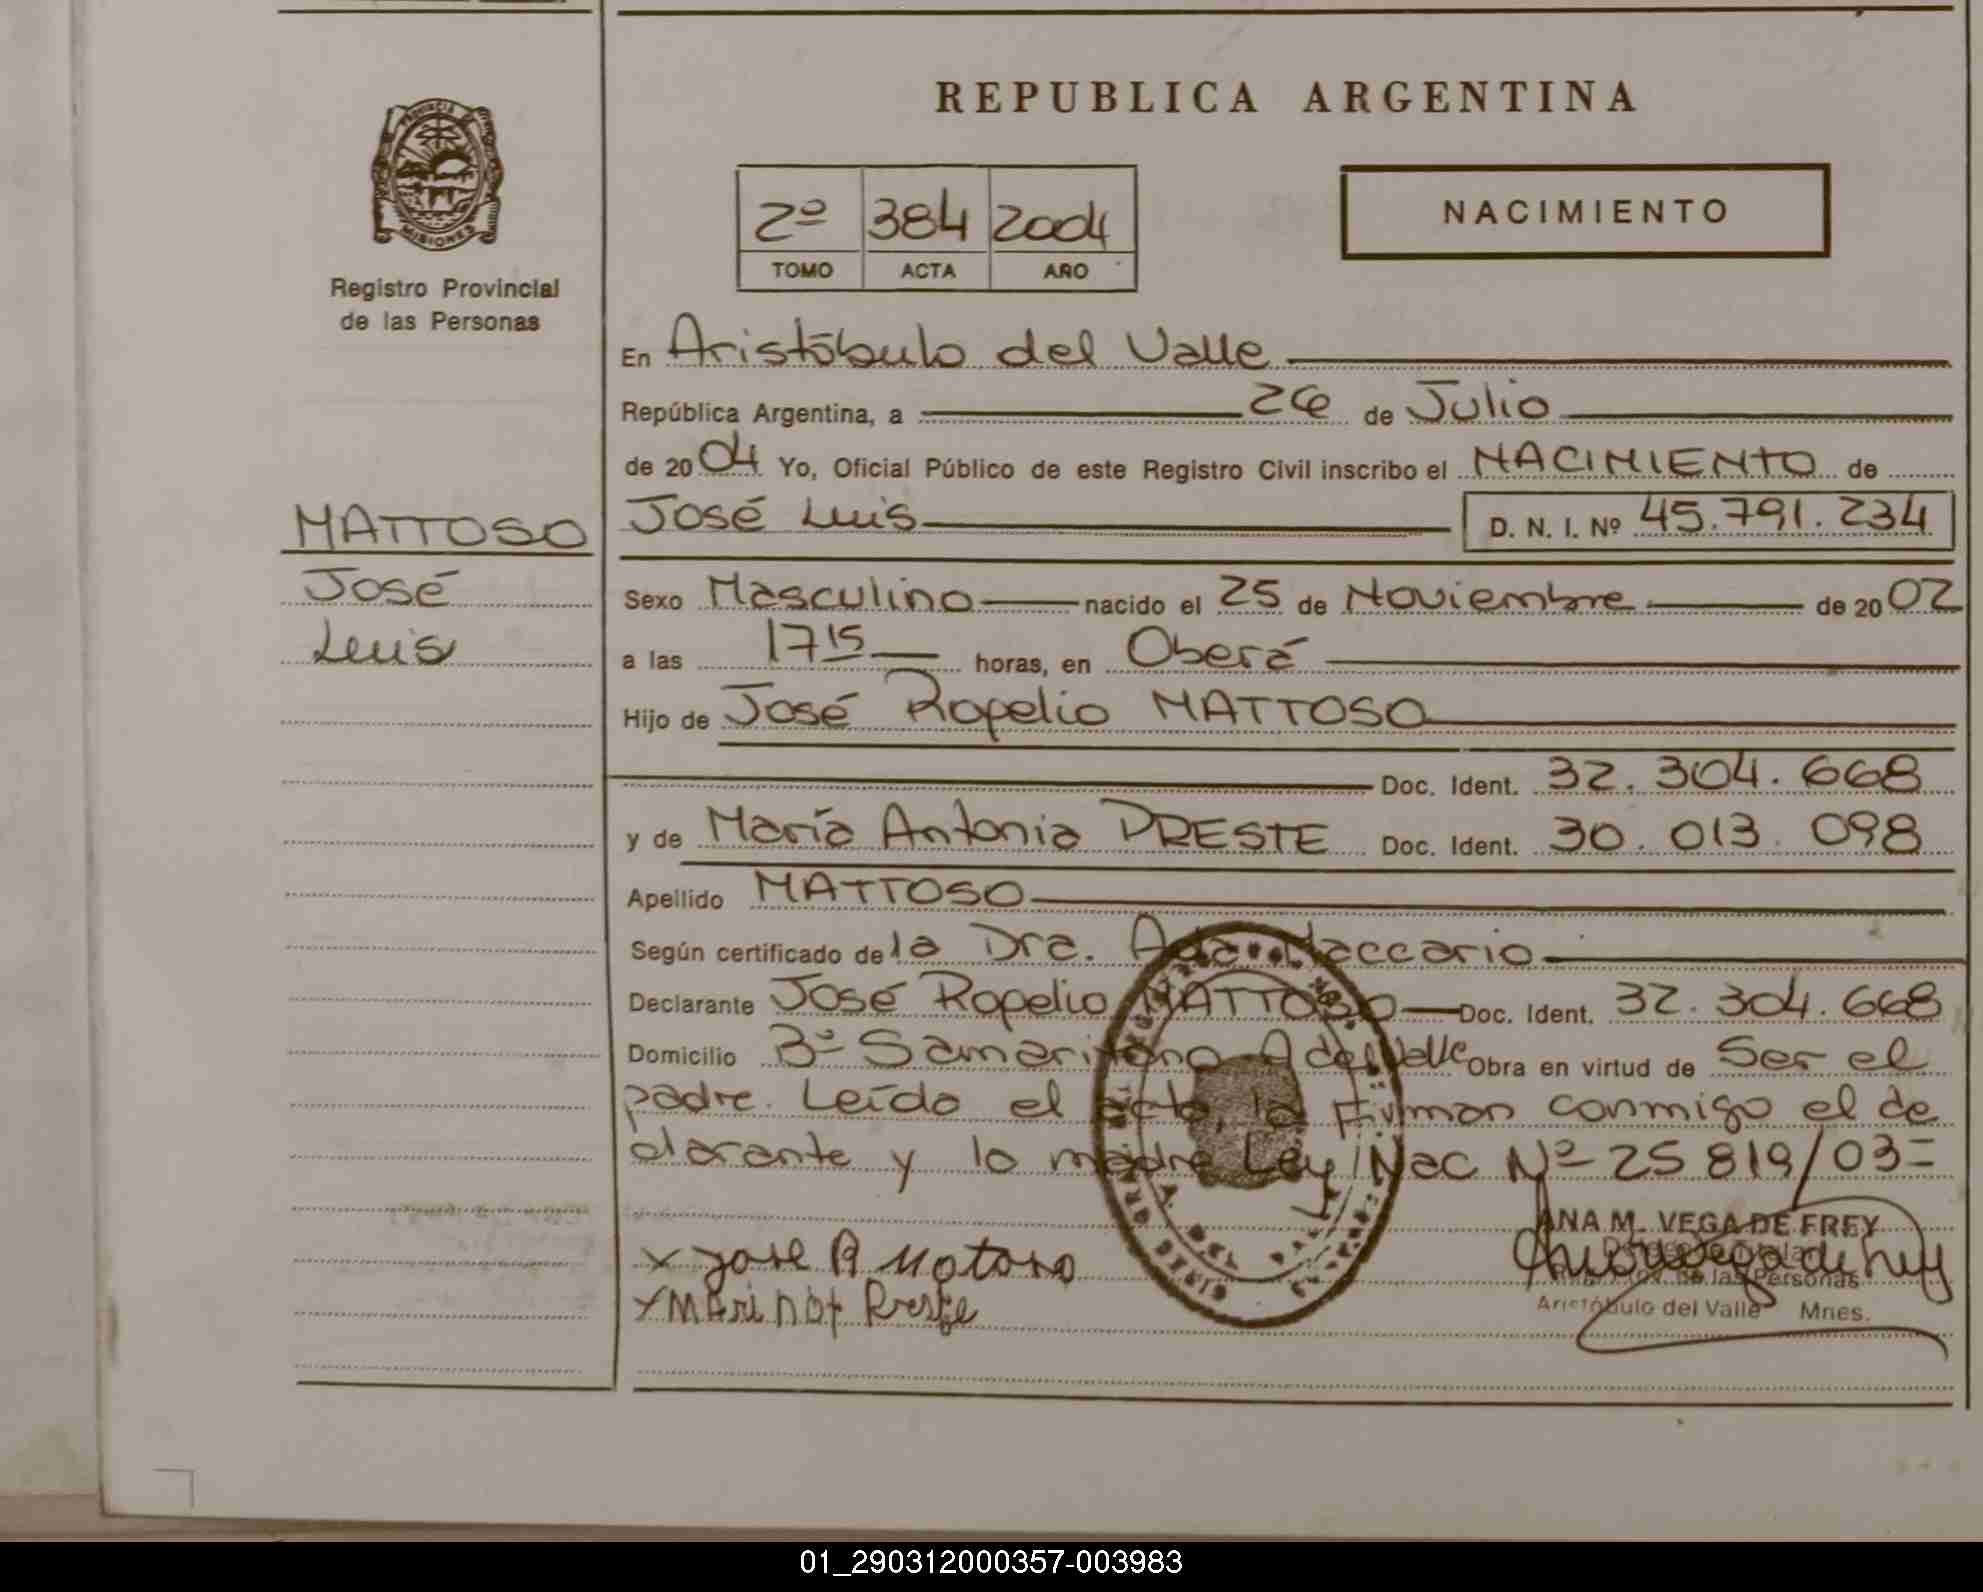 REPUBLICA ARGENTINA
PROVINCIA DE
MISIONES
Registro Provincial
de las Personas
2º 384 2004
TOMO ACTA AÑO
NACIMIENTO
En Aristóbulo del Valle
República Argentina, a 26 de Julio
de 2004 Yo, Oficial Público de este Registro Civil inscribo el NACIMIENTO de
MATTOSO
José
Luis
José Luis D. N. I. Nº 45.791.234
Sexo Masculino nacido el 25 de Noviembre de 2002
a las 17 15 horas, en Oberá
Hijo de José Rogelio MATTOSO
Doc. Ident. 32.304.668
y de María Antonia PRESTE Doc. Ident. 30.013.098
Apellido MATTOSO
Según certificado de la Dra. Ada Maccario
Declarante José Rogelio MATTOSO Doc. Ident. 32.304.668
Domicilio Bº Samaritano A del Valle Obra en virtud de Ser el
padre. Leído el acta, la Firman conmigo el de
clarante y la madre Ley Nac Nº 25 819/03=
ANA M. VEGA DE FREY
de las Personas
Aristóbulo del Valle Mnes.
x Jose R Motoso
x Preste
01_290312000357-003983